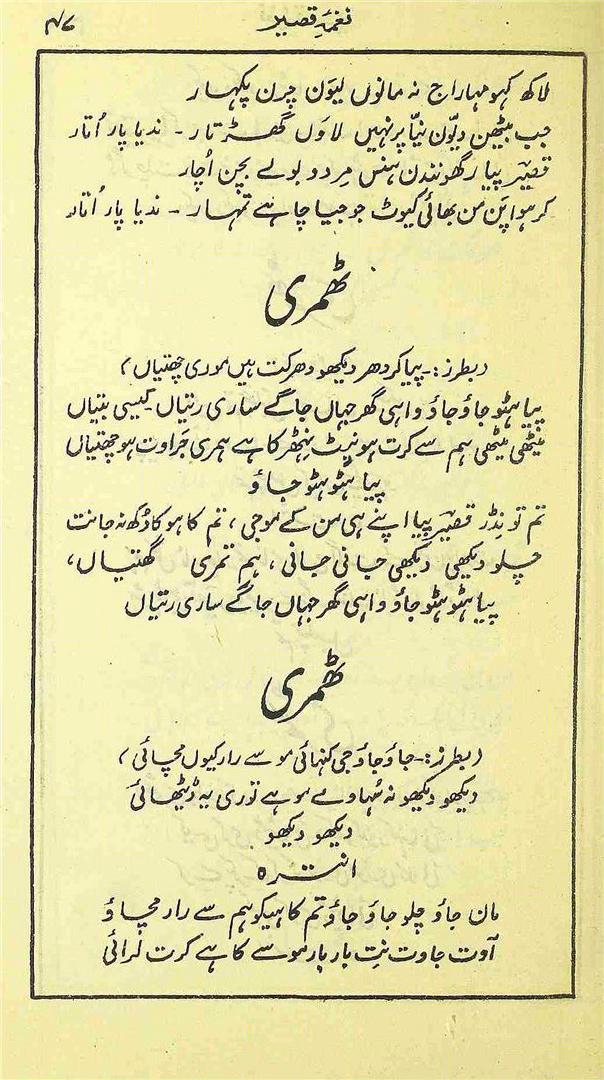 نغمۂ قصیر
۴۷
لاکھ کہو مہاراج نہ مانوں لیوَن چرن پکہار
جب بیٹھن دیوّن نیّا پر نہیں لاوَں گھڑتار - ندیا پار اُتار
قصیر پیا رگھونندن ہنس مردو بولے بچن اُچار
کرہو اپن من بھائی کیوٹ جو جیا چاہے تمہار - ندیا پار اُتار
ٹھمری
(بطرز:- پیا کر دھر دیکھو دھرکت ہیں موری چھتیاں)
پیا ہٹو جاؤ جاؤ واہی گھر جہاں جاگے ساری رتیاں - کیسی بتیاں
میٹھی میٹھی ہم سے کرت ہو نپٹ نٹھر کاہے ہمری جَراوت ہو چھتیاں
پیا ہٹو ہٹو جاؤ
تم تو نِڈر قصیر پیا اپنے ہی من کے موجی، تم کا ہو کا دُکھ نہ جانت
چلو دیکھی دیکھی جانی جانی، ہم تمری گھتیاں،
پیا ہٹو ہٹو جاؤ واہی گھر جہاں جاگے ساری رتیاں
ٹھمری
(بطرز:- جاؤ جاؤ جی کنہائی مو سے رار کیوں مچائی)
دیکھو دیکھو نہ سُہاوے موہے توری یہ ڈیٹھائی
دیکھو دیکھو
انترہ
مان جاؤ چلو جاؤ جاؤ تم کاہیکو ہم سے رار مچاؤ
آوت جاوت نِت بار بار موسے کاہے کرت لرائی